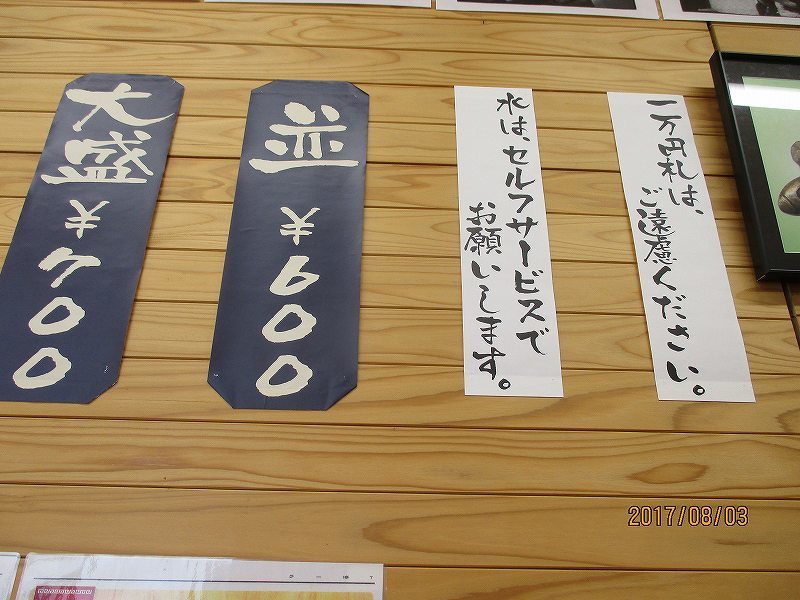 一万円札は、
ご遠慮ください。
水は、セルフサービスで
お願いします。
並
¥600
大盛
¥700
2017/08/03